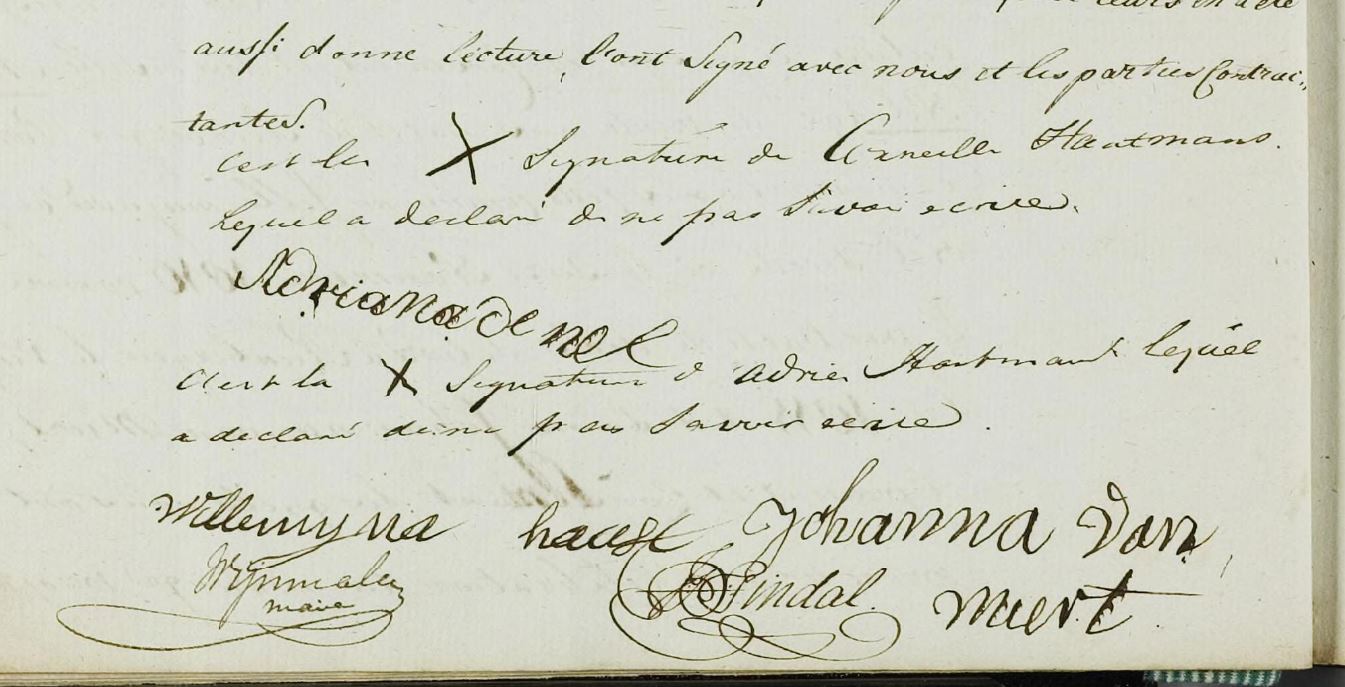 leurs en a été
aussi donne lecture, l'ont Signé avec nous et les parties Contrac„
tantes.
C'est la X Signature de Corneille Hautmans.
lequel a declaré de ne pas Savoir ecrire.
Adriana de nel
C'est la X Signature d' adrien Hautmans lequel
a declaré de ne pas Savoir ecrire.
Willemyna haest Johanna Van
Wijnmalen Vindal. miert
maire